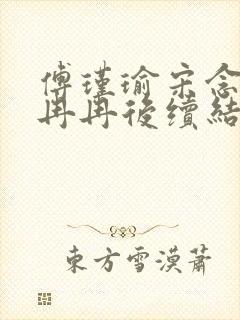 傅瑾瑜宋念
冉冉後續結
東方雪漠蕭